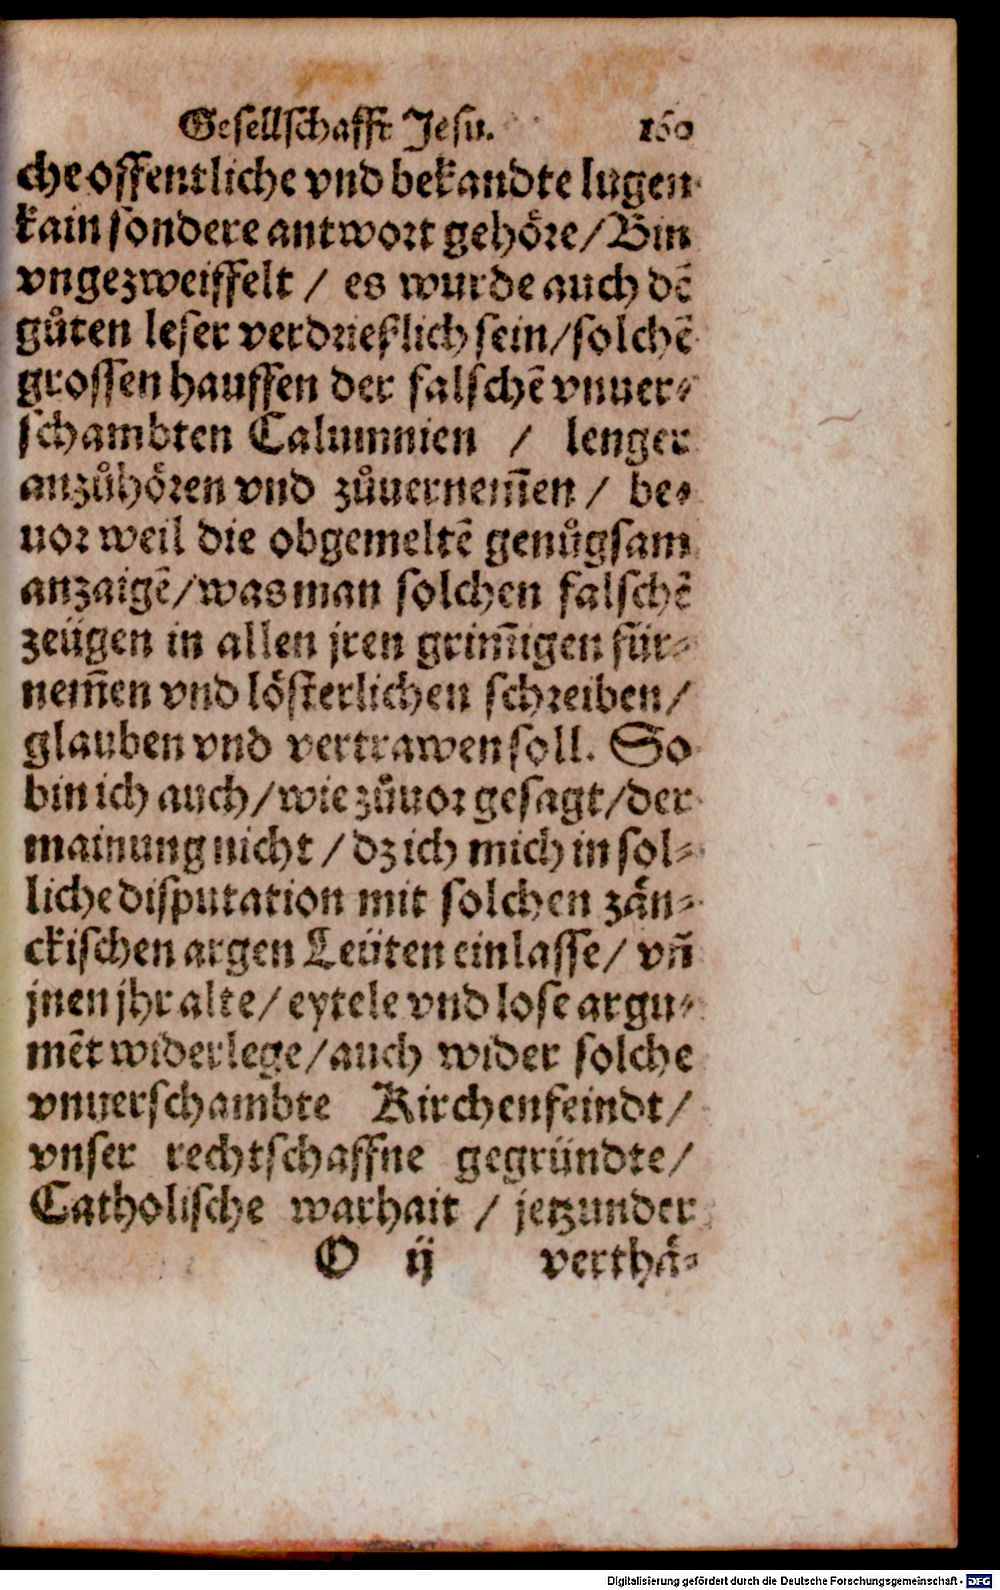 Gesellschafft Jesu. 160
che offentliche vnd bekandte lugen
kain sondere antwort gehöre/ Bin
vngezweiffelt / es wurde auch dē
gůten leser verdrießlich sein/ solchē
grossen hauffen der falschē vnuer-
schambten Calumnien / lenger
anzůhören vnd zůuernem̄en / be-
uor weil die obgemeltē genůgsam
anzaigē/ was man solchen falschē
zeügen in allen jren grim̄igen für-
nem̄en vnd lösterlichen schreiben/
glauben vnd vertrawen soll. So
bin ich auch/ wie zůuor gesagt/ der
mainung nicht / dz ich mich in sol-
liche disputation mit solchen zän-
ckischen argen Leüten einlasse/ vn̄
jnen jhr alte/ eytele vnd lose argu-
mēt widerlege/ auch wider solche
vnuerschambte Kirchenfeindt/
vnser rechtschaffne gegründte/
Catholische warhait / jetzunder
O ij verthä-
Digitalisierung gefördert durch die Deutsche Forschungsgemeinschaft - DFG